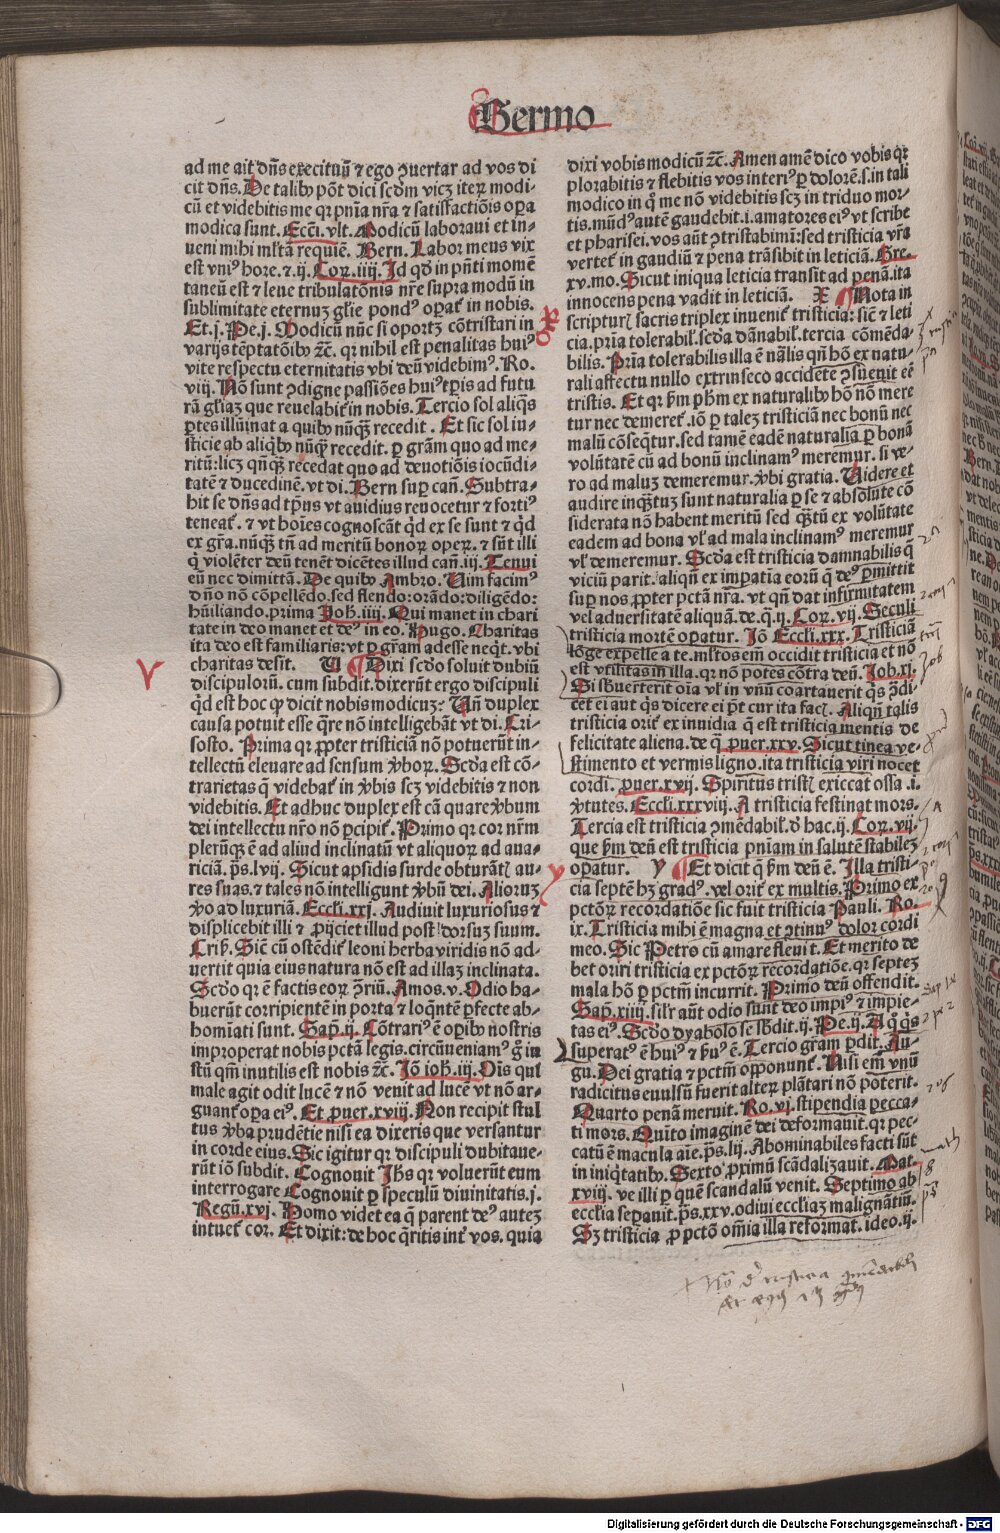 Sermo
ad me ait dn̄s exercituū ⁊ ego ꝯuertar ad vos di
cit dn̄s. De talibꝰ pōt dici scd̄m vicꝫ iterꝫ modi-
cū et videbitis me qꝛ pn̄ia nr̄a ⁊ satisfactiōis oꝑa
modica sunt. Ecc̄i. vlt. Modicū laboraui et in-
ueni mihi ml̄tā requiē. Bern. Labor meus vix
est vniꝰ hore. ⁊.ij. Coꝝ.iiij. Id qd̄ in pn̄ti momē
taneū est ⁊ leue tribulatōnis nr̄e supra modū in
sublimitate eternuꝫ gl̄ie pondꝰ oꝑat̄ in nobis.
Et.j. Pe.j. Modicū nūc si oportꝫ cōtristari in
varijs tēptatōibꝰ ⁊c̄. qꝛ nihil est penalitas huiꝰ
vite respectu eternitatis vbi deū videbimꝰ. Ro.
viij. Nō sunt ꝯdigne passiōes huiꝰ tꝑis ad futu
rā gl̄iaꝫ que reuelabit̄ in nobis. Tercio sol aliqs̄
ꝑtes illuīnat a quibꝰ nūqꝫ recedit. Et sic sol iu-
sticie ab aliqbꝰ nūqꝫ recedit. ꝑ grām quo ad me-
ritū: licꝫ qn̄qꝫ recedat quo ad deuotiōis iocūdi-
tatē ⁊ ducedinē. vt di. Bern suꝑ can̄. Subtra-
hit se dn̄s ad tp̄us vt auidius reuocetur ⁊ fortiꝰ
teneat̄. ⁊ vt hoīes cognoscāt qd̄ ex se sunt ⁊ qd̄
ex gr̄a. nūqꝫ tn̄ ad meritū bonoꝝ oꝑeꝝ. ⁊ sūt illi
q̄ violēter deū tenēt dicētes illud can̄.iij. Tenui
eū nec dimittā. De quibꝰ Ambro. Vim facimꝰ
dn̄o nō cōpellēdo. sed flendo: orādo: diligēdo:
hūiliando. prima Joh̄.iiij. Qui manet in chari
tate in deo manet et deꝰ in eo. Hugo. Charitas
ita deo est familiaris: vt ꝑ grām adesse neqt̄. vbi
charitas desit. V ¶ Dixi scd̄o soluit dubiū
discipuloꝝ. cum subdit. dixerūt ergo discipuli
qd̄ est hoc qd̄ dicit nobis modicuꝫ: Vn̄ duplex
causa potuit esse qr̄e nō intelligebāt vt di. Cri-
sosto. Prima qꝛ ꝓpter tristiciā nō potuerūt in-
tellectū eleuare ad sensum v̄boꝝ. Scd̄a est cō-
trarietas q̄ videbat̄ in v̄bis scꝫ videbitis ⁊ non
videbitis. Et adhuc duplex est cā quare v̄bum
dei intellectu nr̄o nō ꝑcipit̄. Primo qꝛ cor nr̄m
plerūqꝫ ē ad aliud inclinatū vt aliquoꝝ ad aua-
riciā. ps̄.lvij. Sicut apsidis surde obturāt̄ au-
res suas. ⁊ tales nō intelligunt v̄bū dei. Alioruꝫ
v̄o ad luxuriā. Eccl̄i.xxj. Audiuit luxuriosus ⁊
displicebit illi ⁊ proijciet illud post dorsuꝫ suum.
Cris̄. Sic̄ cū ostēdit̄ leoni herba viridis nō ad-
uertit quia eius natura nō est ad illaꝫ inclinata.
Scd̄o qꝛ ē factis eoꝝ ꝯriū. Amos.v. Odio ha-
buerūt corripientē in porta ⁊ loqn̄tē ꝑfecte ab-
homīati sunt. Sap̄.ij. Cōtrariꝰ ē oꝑibꝰ nostris
improperat nobis pctā legis. circūueniamꝰ g̊ iu
stū qm̄ inutilis est nobis ⁊c̄. Jō ioh̄.iij. Oīs qui
male agit odit lucē ⁊ nō venit ad lucē vt nō ar-
guant̄ oꝑa eiꝰ. Et ꝓuer.xviij. Non recipit stul
tus v̄ba prudētie nisi ea dixeris que versantur
in corde eius. Sic igitur qꝛ discipuli dubitaue-
rūt iō subdit. Cognouit Jhs̄ qꝛ voluerūt eum
interrogare Cognouit ꝑ speculū diuinitatis. j.
Regū.xvj. Homo videt ea q̄ parent deꝰ auteꝫ
intuet̄ cor. Et dixit: de hoc q̄ritis int̄ vos. quia
dixi vobis modicū ⁊c̄. Amen amē dico vobis qꝛ
plorabitis ⁊ flebitis vos interiꝰ ꝑ dolorē. s. in tali
modico in q̄ me nō videbitis scꝫ in triduo mor-
tis. mūdꝰ autē gaudebit. i. amatores eiꝰ vt scribe
et pharisei. vos aūt ꝯtristabimī: sed tristicia vr̄a
vertet̄ in gaudiū ⁊ pena trāsibit in leticiā. Gre.
xv.mo. Sicut iniqua leticia transit ad penā. ita
innocens pena vadit in leticiā. X ¶ Nota in
scripturꝭ sacris triplex inuenit̄ tristicia: sic̄ ⁊ leti
cia. pr̄ia tolerabil̄. scd̄a dānabil̄. tercia cōmēda-
bilis. Pr̄ia tolerabilis illa ē nālis qn̄ hō ex natu-
rali affectu nullo extrinseco accidēte ꝯsueuit eē
tristis. Et qꝛ ẜm ph̄m ex naturalibꝰ hō nō mere
tur nec demeret̄. iō ꝑ taleꝫ tristiciā nec bonū nec
malū cōseqtur. sed tamē eadē naturalia ꝑ bonā
volūtatē cū ad bonū inclinamꝰ meremur. si ve-
ro ad maluꝫ demeremur. v̄bi gratia. Videre et
audire inqꝫtuꝫ sunt naturalia ꝑ se ⁊ absolute cō
siderata nō habent meritū sed qꝫtū ex volūtate
eadem ad bona vl̄ ad mala inclinamꝰ meremur
vl̄ demeremur. Scd̄a est tristicia damnabilis q̄
viciū parit. aliqn̄ ex impatia eoꝝ q̄ deꝰ ꝑmittit
suꝑ nos ꝓpter pctā nr̄a. vt qn̄ dat infirmitatem
vel aduersitatē aliquā. de. q̄.ij. Coꝝ.vij. Seculi
tristicia mortē oꝑatur. Jō Eccl̄i.xxx. Tristiciā
lōge expelle a te. ml̄tos em̄ occidit tristicia et nō
est vtilitas in illa. qꝛ nō potes cōtra deū. Job.xi.
Si sb̄uerterit oīa vl̄ in vnū coartauerit qs̄ ꝯdi-
cet ei aut qs̄ dicere ei pt̄ cur ita facꝭ. Aliqn̄ talis
tristicia orit̄ ex inuidia q̄ est tristicia mentis de
felicitate aliena. de q̄ ꝓuer.xxv. Sicut tinea ve-
stimento et vermis ligno. ita tristicia viri nocet
cordi. ꝓuer.xvij. Spiritus tristꝭ exiccat ossa. i.
v̄tutes. Eccl̄i.xxxviij. A tristicia festinat mors.
Tercia est tristicia ꝯmēdabil̄. d̄ hac.ij. Coꝝ.vij.
que ẜm deū est tristicia pn̄iam in salutē stabileꝫ
oꝑatur. Y ¶ Et dicit q̄ ẜm deū ē. Illa tristi-
cia septē hꝫ gradꝰ. vel orit̄ ex multis. Primo ex
pctoꝝ recordatiōe sic fuit tristicia Pauli. Ro.
ix. Tristicia mihi ē magna et ꝯtinuꝰ dolor cordi
meo. Sic Petrꝰ cū amare fleuit. Et merito de
bet oriri tristicia ex pctoꝝ recordatiōe. qꝛ septeꝫ
mala hō ꝑ pctm̄ incurrit. Primo deū offendit.
Sap̄.xiiij. sil̄r aūt odio sunt deo impiꝰ ⁊ impie-
tas eiꝰ. Scd̄o dyabolo se sb̄dit.ij. Pe.ij. A q̊ qs̄
superatꝰ ē huiꝰ ⁊ ẜuꝰ ē. Tercio grām ꝑdit. Au-
gu. Dei gratia ⁊ pctm̄ opponunt̄. Nisi em̄ vnū
radicitus euulsū fuerit alterꝫ plātari nō poterit.
Quarto penā meruit. Ro.vj. stipendia pecca-
ti mors. Quīto imaginē dei deformauit. qꝛ pec-
catū ē macula aīe. ps̄.lij. Abominabiles facti sūt
in iniqtatibꝰ. Sexto ꝓximū scādalizauit. Mat.
xviij. ve illi ꝑ quē scandalū venit. Septimo ab
eccl̄ia seꝑauit. ps̄.xxv. odiui eccl̄iaꝫ malignātiū.
Sꝫ tristicia ꝓ pctō om̄ia illa reformat. ideo.ij.
V
Y
Digitalisierung gefördert durch die Deutsche Forschungsgemeinschaft - DFG